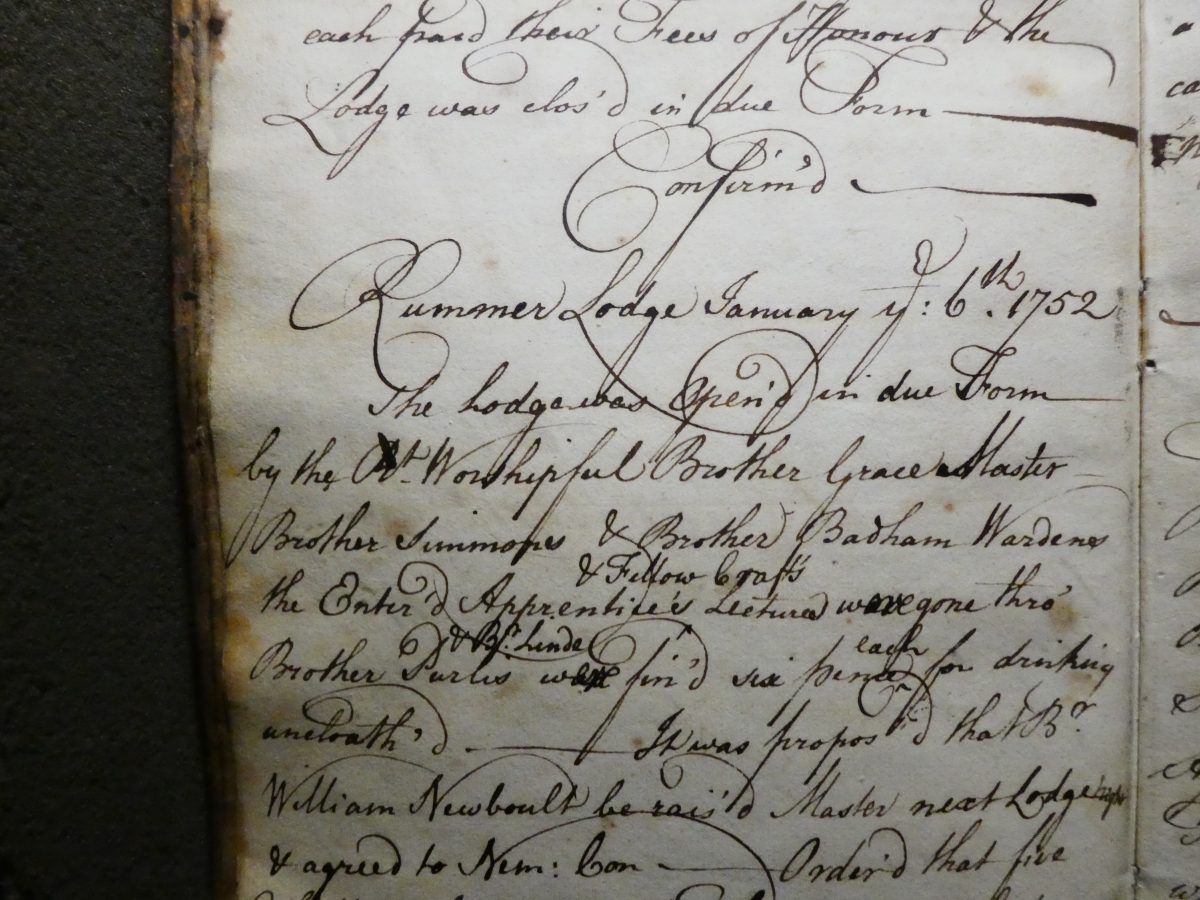 each paid their Fees of Honour & the
Lodge was clos'd in due Form
Confirm'd
Rummer Lodge January ye: 6th. 1752
The Lodge was Open'd in due Form
by the Rt. Worshipful Brother Grace Master
Brother Simmons & Brother Badham Wardens
& Fellow Craft's
the Enter'd Apprentice's Lectured were gone thro'
& Br. Linde
each
Brother Purlis were fin'd six pence for drinking
uncloath'd It was propos'd that Br.
William Newboult be rais'd Master next Lodge night
& agreed to Nem: Con Order'd that five